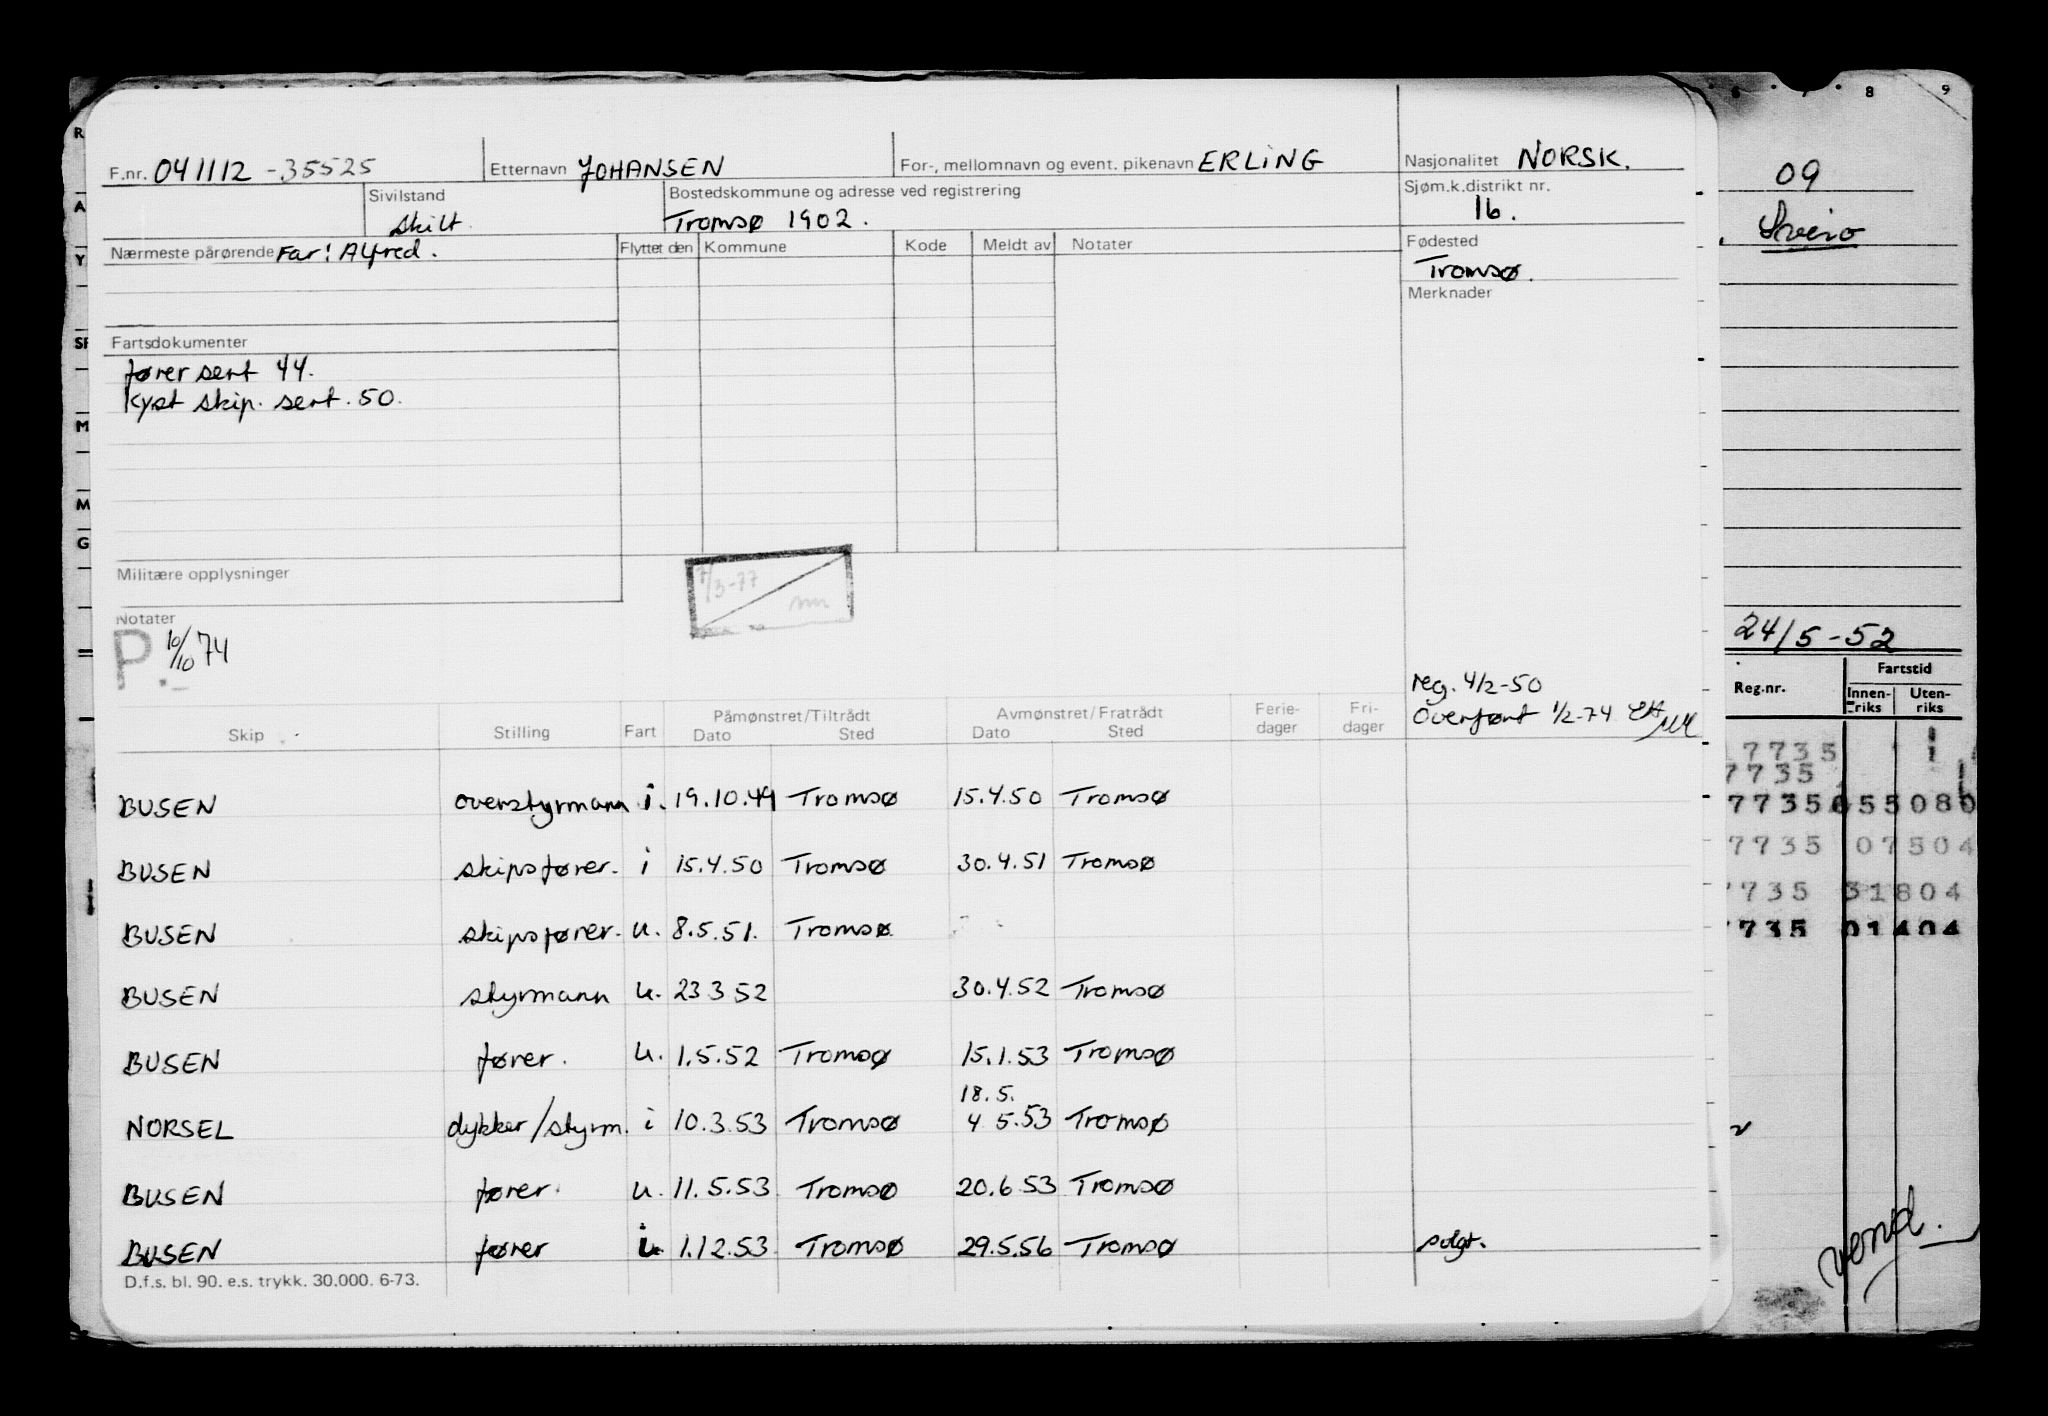 F.nr. 041112 -35525 Etternavn JOHANSEN For-, mellomnavn og event. pikenavn ERLING Nasjonalitet NORSK.
Sivilstand skilt Bostedskommune og adresse ved registrering Tromsø 1902. Sjøm.k.distrikt nr. 16.
Nærmeste pårørende Far: Alfred. Flyttet den Kommune Kode Meldt av Notater Fødested
Tromsø.
Merknader
Fartsdokumenter
fører sert 44.
Kyst skip. sert. 50.
Militære opplysninger
7/3-77
Notater
P. 10/10 74
reg. 4/2-50
Overført 1/2-74
Skip Stilling Fart Påmønstret/Tiltrådt Dato Sted Avmønstret/Fratrådt Dato Sted Ferie-dager Fri-dager
BUSEN overstyrmann i. 19.10.49 Tromsø 15.4.50 Tromsø
BUSEN skipsfører. i 15.4.50 Tromsø 30.4.51 Tromsø
BUSEN skipsfører. u. 8.5.51. Tromsø
BUSEN styrmann u. 23 3 52 30.4.52 Tromsø
BUSEN fører. u. 1.5.52 Tromsø 15.1.53 Tromsø
18.5.
NORSEL dykker/styrm. i 10.3.53 Tromsø 4 5.53 Tromsø
BUSEN fører. u. 11.5.53 Tromsø 20.6 53 Tromsø
BUSEN fører 1.12.53 Tromsø 29.5.56 Tromsø solgt.
D.f.s. bl. 90. e.s. trykk. 30.000. 6-73.
R
A
Y
M
M
G
6 7 8 9
09
Sveio
24/5-52
Reg.nr. Fartstid
Innen-riks Uten-riks
7735
7735
7735 055080
7735 07504
7735 31804
7735 01404
vend.